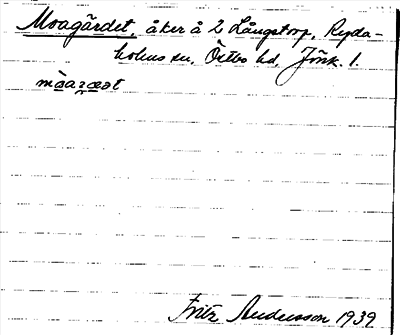 Moagärdet, åker å 2 Långstorp, Ryda-
holms sn, Östbo hd, Jönk. l.
Fritz Andersson 1939